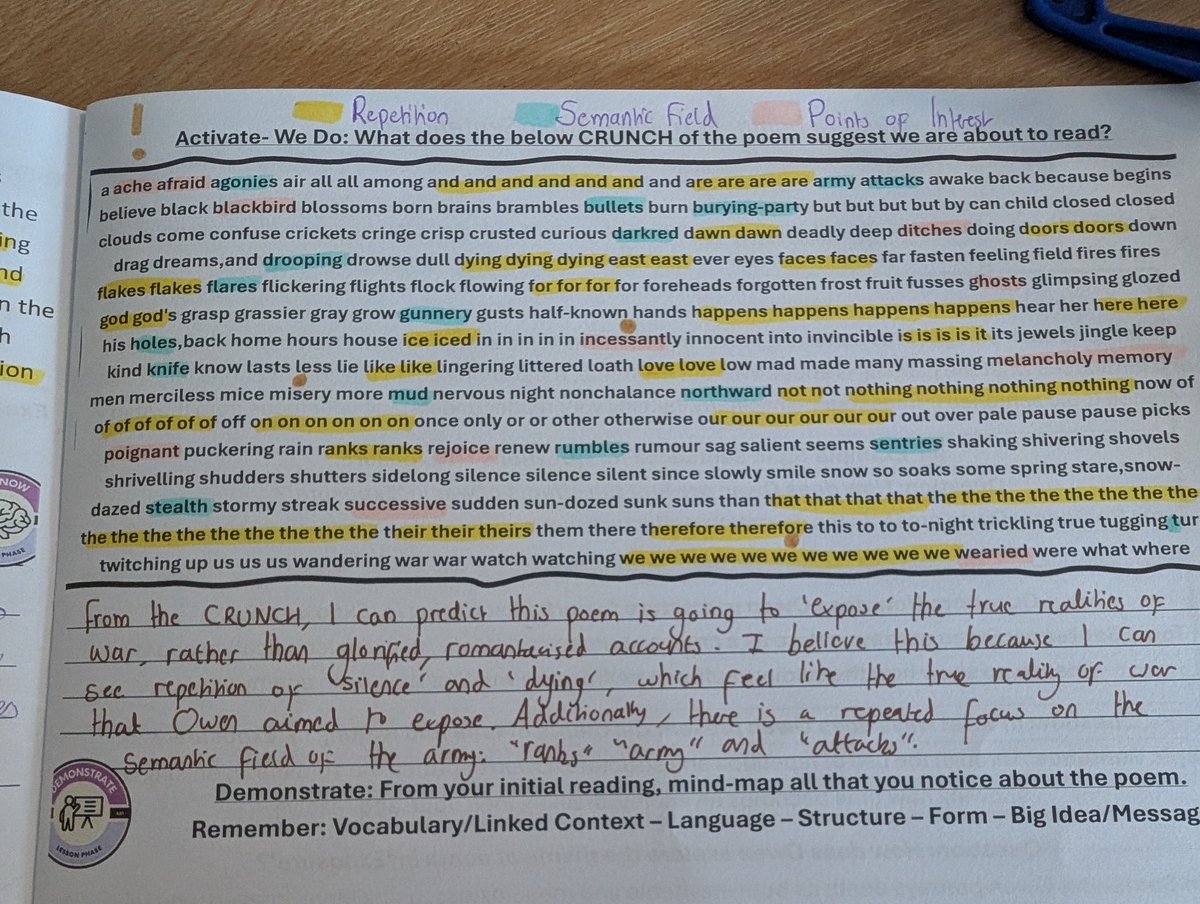 Repetition Semantic Field Points of Interest
Activate- We Do: What does the below CRUNCH of the poem suggest we are about to read?
a ache afraid agonies air all all among and and and and and and and are are are are army attacks awake back because begins
believe black blackbird blossoms born brains brambles bullets burn burying-party but but but but by can child closed closed
clouds come confuse crickets cringe crisp crusted curious darkred dawn dawn deadly deep ditches doing doors doors down
drag dreams,and drooping drowse dull dying dying dying east east ever eyes faces faces far fasten feeling field fires fires
flakes flakes flares flickering flights flock flowing for for for for foreheads forgotten frost fruit fusses ghosts glimpsing glozed
god god's grasp grassier gray grow gunnery gusts half-known hands happens happens happens happens hear her here here
his holes,back home hours house ice iced in in in in in incessantly innocent into invincible is is is is it its jewels jingle keep
kind knife know lasts less lie like like lingering littered loath love love low mad made many massing melancholy memory
men merciless mice misery more mud nervous night nonchalance northward not not nothing nothing nothing nothing now of
of of of of of of off on on on on on on once only or or other otherwise our our our our our our out over pale pause pause picks
poignant puckering rain ranks ranks rejoice renew rumbles rumour sag salient seems sentries shaking shivering shovels
shrivelling shudders shutters sidelong silence silence silent since slowly smile snow so soaks some spring stare,snow-
dazed stealth stormy streak successive sudden sun-dozed sunk suns than that that that that the the the the the the the the
the the the the the the the the the the their their theirs them there therefore therefore this to to to-night trickling true tugging tur
twitching up us us us wandering war war watch watching we we we we we we we we we we we wearied were what where
From the CRUNCH, I can predict this poem is going to 'expose' the true realities of
war, rather than glorified, romantacised accounts. I believe this because I can
see repetition of 'silence' and 'dying', which feel like the true reality of war
that Owen aimed to expose. Additionally, there is a repeated focus on the
semantic field of the army: "ranks" "army" and "attacks".
DEMONSTRATE
LESSON PHASE
Demonstrate: From your initial reading, mind-map all that you notice about the poem.
Remember: Vocabulary/Linked Context – Language – Structure – Form – Big Idea/Messag
the
ing
nd
n the
h
ion
NOW
PHASE